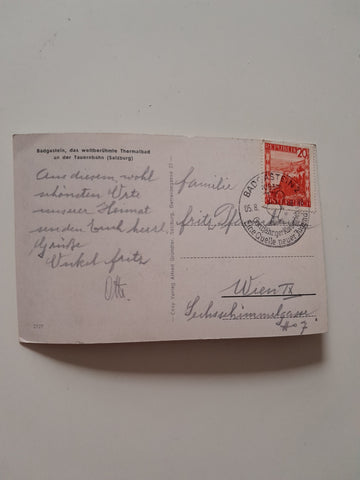 Badgastein, das weltberühmte Thermalbad
an der Tauernbahn (Salzburg)
Aus diesem wohl
schönsten Orte
unserer Heimat
senden Euch herzl.
Grüße
Onkel Fritz
Otto
2127
Cosy Verlag Alfred Gründler, Salzburg,
Familie
Fritz
Wien IX
Sechsschimmelgasse
No 7.
REPUBLIK
20
BADGASTEIN
05.8.
Eine Quelle neuer Jugend